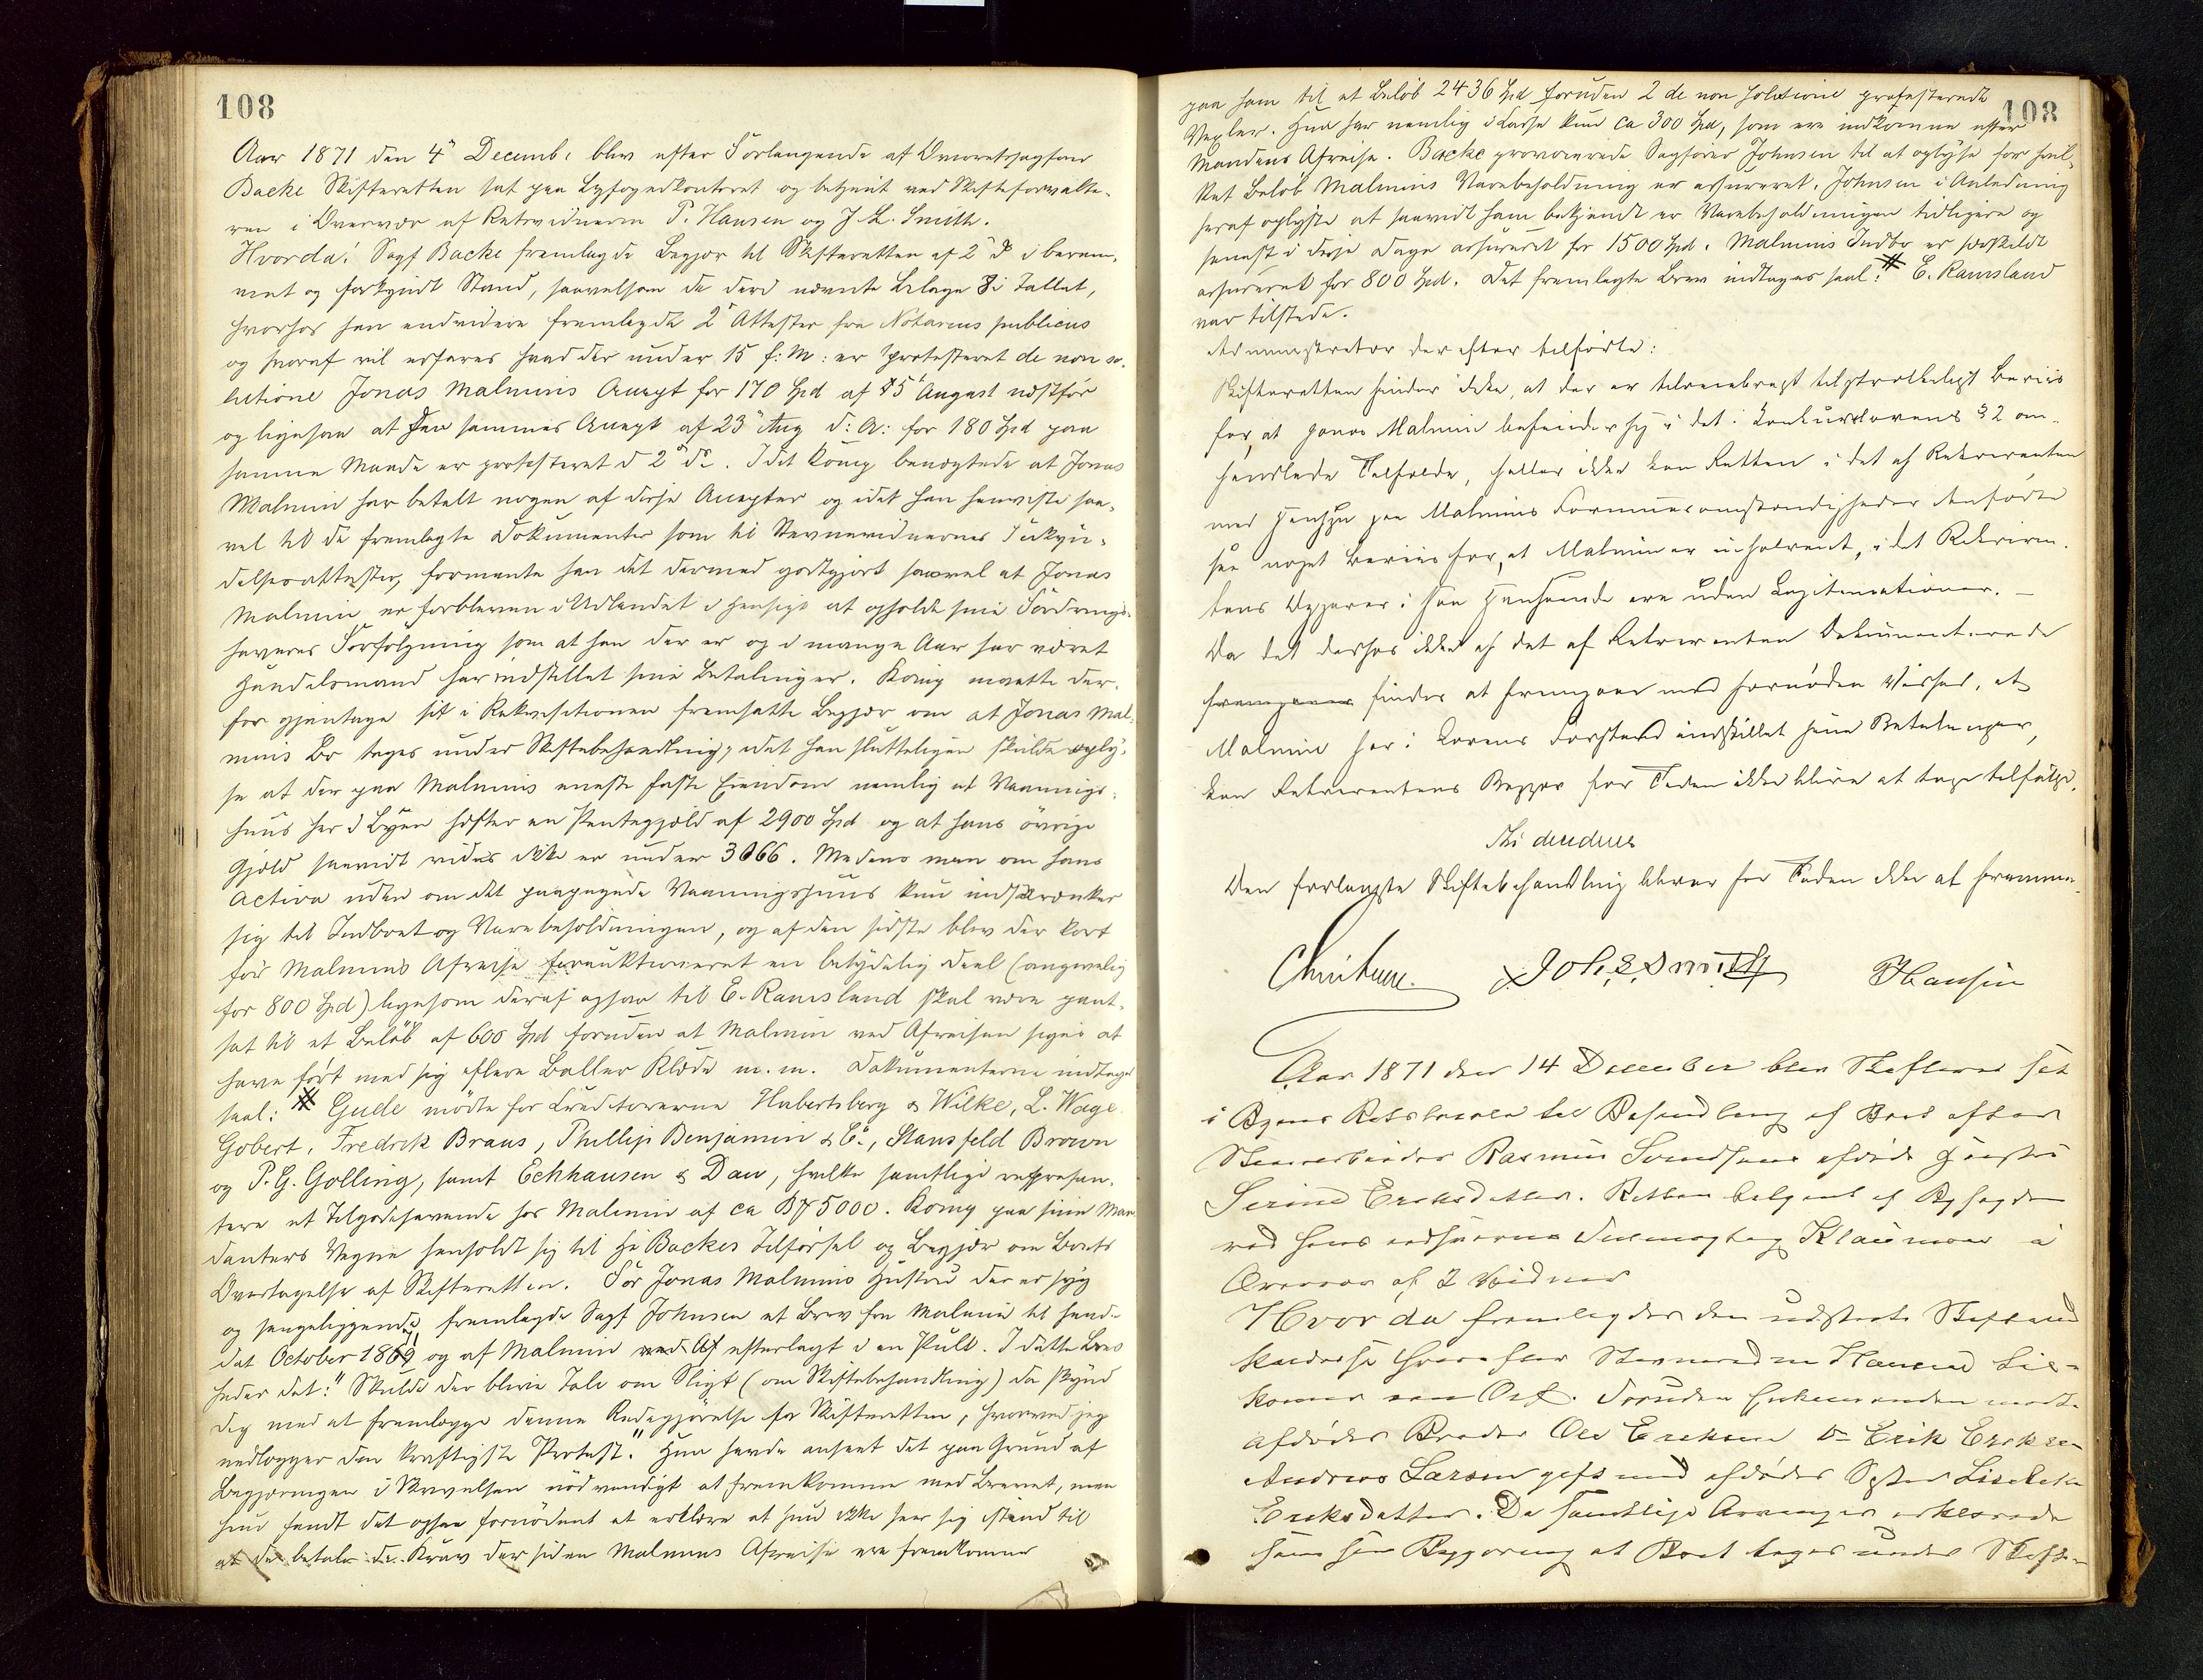 108
Aar 1871 den 4' Decemb: blev efter Forlangende af Overretssagfører
Backe Skifteretten sat paa Byfogedkontoret og betjent ved Skifteforvalte-
ren i Overvær af Retsvidnerne P. Hansen og J. L. Smith.
Hvorda: Sagf Backe fremlagde Begjær til Skifteretten af 2' ds i beram-
met og forkyndt Stand, saavelsom de deri nævnte Bilage 8 i Tallet,
hvorhos han endvidere fremlagde 2 Attester fra Notarius publicus
og hvoraf vil erfares hvad der under 15 f: M: er protesteret de non so-
lutione Jonas Malmins Accept for 170 Spd af 15' August næstfør
og ligesaa at den sammes Accept af 23' Aug d: A: for 180 Spd paa
samme Maade er protesteret d 2' ds. Idet Komp benægtede at Jonas
Malmin har betalt nogen af disse Accepter og idet han henviste saa-
vel til de fremlagte Dokumenter som til Stevnevidnernes Forkyn-
delsesattester, formente han det dermed godtgjort saavel at Jonas
Malmin er forbleven i Udlandet i Hensigt at opholde sine Fordrings-
haveres Forfølgning som at han der er og i mange Aar har været
Handelsmand har indstillet sine Betalinger. Komp maatte der-
for gjentage sit i Rekvisitionen fremsatte Begjær om at Jonas Mal-
mins Bo tages under Skiftebehandling, idet han sluttelig skulde oply-
se at der paa Malmins eneste faste Eiendom nemlig et Vaanings-
huus her i Byen hefter en Pantegjæld af 2900 Spd og at hans øvrige
Gjæld saavidt vides ikke er under 3066. Medens man om hans
Activa uden om det paapegede Vaaningshuus kun indskrænker
sig til Indboet og Varebeholdningen, og af den sidste blev der kort
før Malmins Afreise forauktioneret en betydelig Deel (angivelig
for 800 Spd) ligesom deraf ogsaa til E. Ramsland skal være pant-
sat til et Beløb af 600 Spd foruden at Malmin ved Afreisen siges at
have ført med sig flere Baller Klæde m. m. Dokumenterne indtages
saal: # Gude mødte for Creditorerne Hubertsberg & Wilke, L. Wage
Gobert, Fredrik Braus, Phillip Benjamin & Co, Stansfeld Brown
og P. G. Golling, samt Eckhausen & Dau, hvilke samtlige repræsen-
tere et Tilgodehavende hos Malmin af ca 5000. Komp paa sine Man-
danters Vegne henholdt sig til Hr Backes Tilførsel og Begjær om Boets
Overtagelse af Skifteretten. For Jonas Malmins Hustru der er syg
og sengeliggende, fremlagde Sagf Johnsen et Brev fra Malmin til hende
dat October 1869 og af Malmin efterlagt i en Pult. I dette Brev
heder det: "Skulde der blive Tale om Sligt (om Skiftebehandling) da skynd
dig med at fremlægge denne Redegjørelse for Skifteretten, hvorved jeg
nedlægger den kraftigste Protest." Hun havde anseet det paa Grund af
Begjæringen i Stevnelsen nødvendigt at fremkomme med Brevet, men
hun fandt det ogsaa fornødent at erklære at hun ikke saa sig istand til
at betale de Krav der siden Malmins Afreise ere fremkomne
108
paa ham til et Beløb 2436 Spd foruden 2 de non solutione protesterede
Vexler. Hun har nemlig i Casse kun ca 300 Spd, som ere indkomne efter
Mandens Afreise. Backe provocerede Sagfører Johnsen til at oplyse for hvil-
ket Beløb Malmins Varebeholdning er assureret. Johnsen i Anledning
heraf oplyste at saavidt ham bekjendt er Varebeholdningen tidligere og
senest i disse Dage assureret for 1500 Spd. Malmins Indbo er særskildt
assureret for 800 Spd. Det fremlagte Brev indtages saal: # E. Ramsland
var tilstede.
Administrator derefter tilførte:
Skifteretten finder ikke, at der er tilveiebragt tilstrækkeligt Beviis
for, at Jonas Malmin befinder sig i det i Konkurslovens § 2 om-
handlede Tilfælde, heller ikke kan Retten i det af Rekvirenten
med Hensyn paa Malmins Formuesomstændigheder Anførte
see noget Beviis for, at Malmin er insolvent, idet Rekviren-
tens Opgaver i saa Henseende ere uden Legitimationer. –
Da det derhos ikke af det af Rekvirenten Dokumenterede
findes at fremgaae med fornøden Vished, at
Malmin har i Lovens Forstand indstillet sine Betalinger,
kan Rekvirentens Begjær for Tiden ikke blive at tage tilfølge.
Thi eragtes
Den forlangte Skiftebehandling bliver for Tiden ikke at fremme.
Christensen. Joh. L. Smith PHansen
Aar 1871 den 14 December blev Skifteret sat
i Byens Retslocale til Behandling af Boet efter
Rasmus Svendsens afdøde Hustru
Serine Eriksdatter. Retten betjent af Byfogden
ved hans edsvorne Fuldmægtig Klaumann i
Overvær af 2 Vidner
Hvorda fremlagdes den udstedte Skifte
hvorefter Stevnevidnerne Hansen
Foruden Enkemanden mødte
afdødes Broder Ole Eriksen Do Erik Eriksen
Andreas Larsen gift med afdødes Søster Lisebeth
Eriksdatter. De samtlige Arvinger erklærede
som sin Begjæring at Boet tages under Skifte-